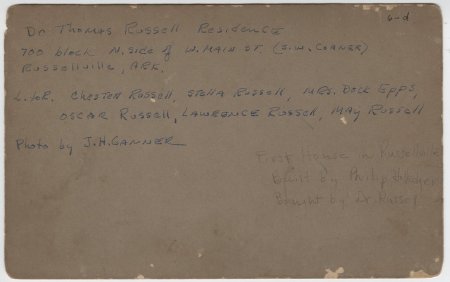 6-d
Dr Thomas Russell Residence
700 block N. side of W. Main St. (S.W. Corner)
Russellville, Ark.
L. to R. Chester Russell, Stella Russell, Mrs. Dock Epps,
Oscar Russell, Lawrence Russell, May Russell
Photo by J.H. Ganner
First House in Russellville
Built by Philip
Bought by Dr. Russell